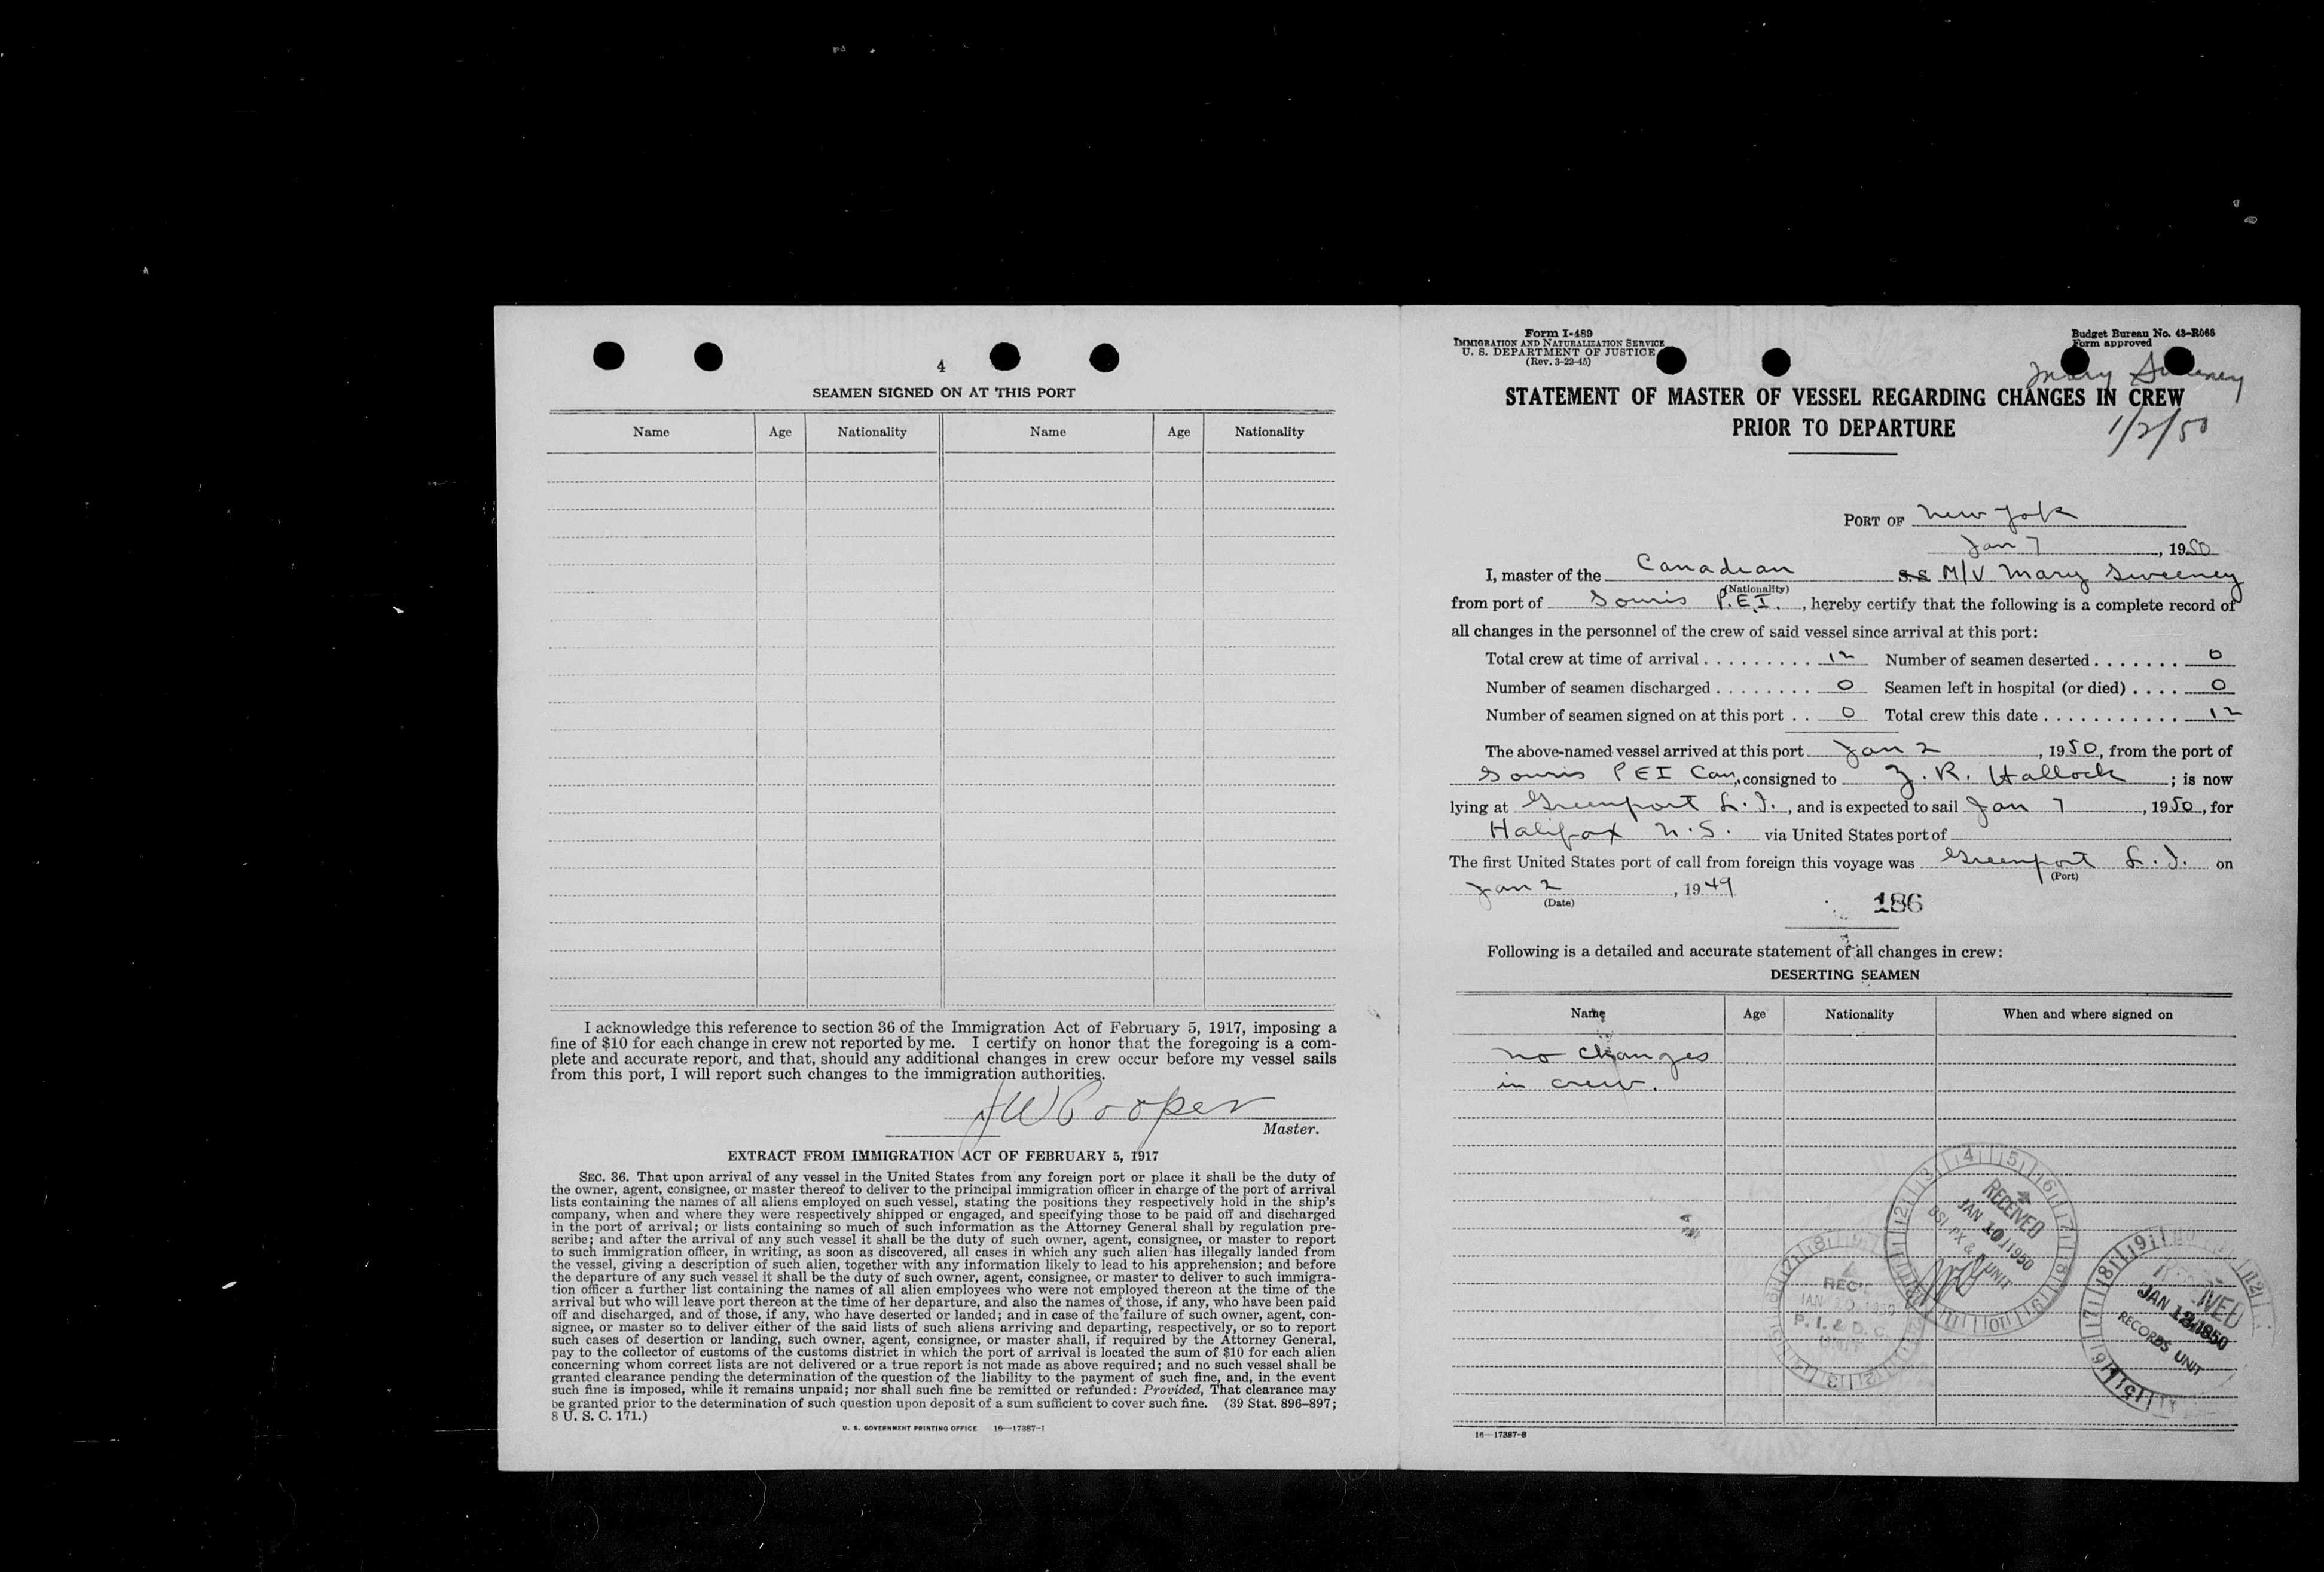 4
SEAMEN SIGNED ON AT THIS PORT
Name Age Nationality Name Age Nationality
I acknowledge this reference to section 36 of the Immigration Act of February 5, 1917, imposing a
fine of $10 for each change in crew not reported by me. I certify on honor that the foregoing is a com-
plete and accurate report, and that, should any additional changes in crew occur before my vessel sails
from this port, I will report such changes to the immigration authorities.
JW Cooper
Master.
EXTRACT FROM IMMIGRATION ACT OF FEBRUARY 5, 1917
SEC. 36. That upon arrival of any vessel in the United States from any foreign port or place it shall be the duty of
the owner, agent, consignee, or master thereof to deliver to the principal immigration officer in charge of the port of arrival
lists containing the names of all aliens employed on such vessel, stating the positions they respectively hold in the ship's
company, when and where they were respectively shipped or engaged, and specifying those to be paid off and discharged
in the port of arrival; or lists containing so much of such information as the Attorney General shall by regulation pre-
scribe; and after the arrival of any such vessel it shall be the duty of such owner, agent, consignee, or master to report
to such immigration officer, in writing, as soon as discovered, all cases in which any such alien has illegally landed from
the vessel, giving a description of such alien, together with any information likely to lead to his apprehension; and before
the departure of any such vessel it shall be the duty of such owner, agent, consignee, or master to deliver to such immigra-
tion officer a further list containing the names of all alien employees who were not employed thereon at the time of the
arrival but who will leave port thereon at the time of her departure, and also the names of those, if any, who have been paid
off and discharged, and of those, if any, who have deserted or landed; and in case of the failure of such owner, agent, con-
signee, or master so to deliver either of the said lists of such aliens arriving and departing, respectively, or so to report
such cases of desertion or landing, such owner, agent, consignee, or master shall, if required by the Attorney General,
pay to the collector of customs of the customs district in which the port of arrival is located the sum of $10 for each alien
concerning whom correct lists are not delivered or a true report is not made as above required; and no such vessel shall be
granted clearance pending the determination of the question of the liability to the payment of such fine, and, in the event
such fine is imposed, while it remains unpaid; nor shall such fine be remitted or refunded: Provided, That clearance may
be granted prior to the determination of such question upon deposit of a sum sufficient to cover such fine. (39 Stat. 896–897;
8 U. S. C. 171.)
U. S. GOVERNMENT PRINTING OFFICE 16—17387-1
Form I-489
IMMIGRATION AND NATURALIZATION SERVICE
U. S. DEPARTMENT OF JUSTICE
(Rev. 3-22-45)
Budget Bureau No. 43-R066
Form approved
Mary Sweeney
STATEMENT OF MASTER OF VESSEL REGARDING CHANGES IN CREW
PRIOR TO DEPARTURE
1/2/50
PORT OF New York
Jan 7, 1950
I, master of the Canadian S.S. M/V Mary Sweeney
(Nationality)
from port of Souris P.E.I., hereby certify that the following is a complete record of
all changes in the personnel of the crew of said vessel since arrival at this port:
Total crew at time of arrival 12 Number of seamen deserted 0
Number of seamen discharged 0 Seamen left in hospital (or died) 0
Number of seamen signed on at this port 0 Total crew this date 12
The above-named vessel arrived at this port Jan 2, 1950, from the port of
Souris PEI Can, consigned to J. R. Hallock; is now
lying at Greenport L.I., and is expected to sail Jan 7, 1950, for
Halifax N.S. via United States port of
The first United States port of call from foreign this voyage was Greenport L.I. on
(Port)
Jan 2, 1949
(Date)
186
Following is a detailed and accurate statement of all changes in crew:
DESERTING SEAMEN
Name Age Nationality When and where signed on
no changes
in crew.
RECEIVED
JAN 10 1950
BSI PX & UNIT
P. I. & D. C.
UNIT
RECEIVED
JAN 12 1950
RECORDS UNIT
16—17387-2